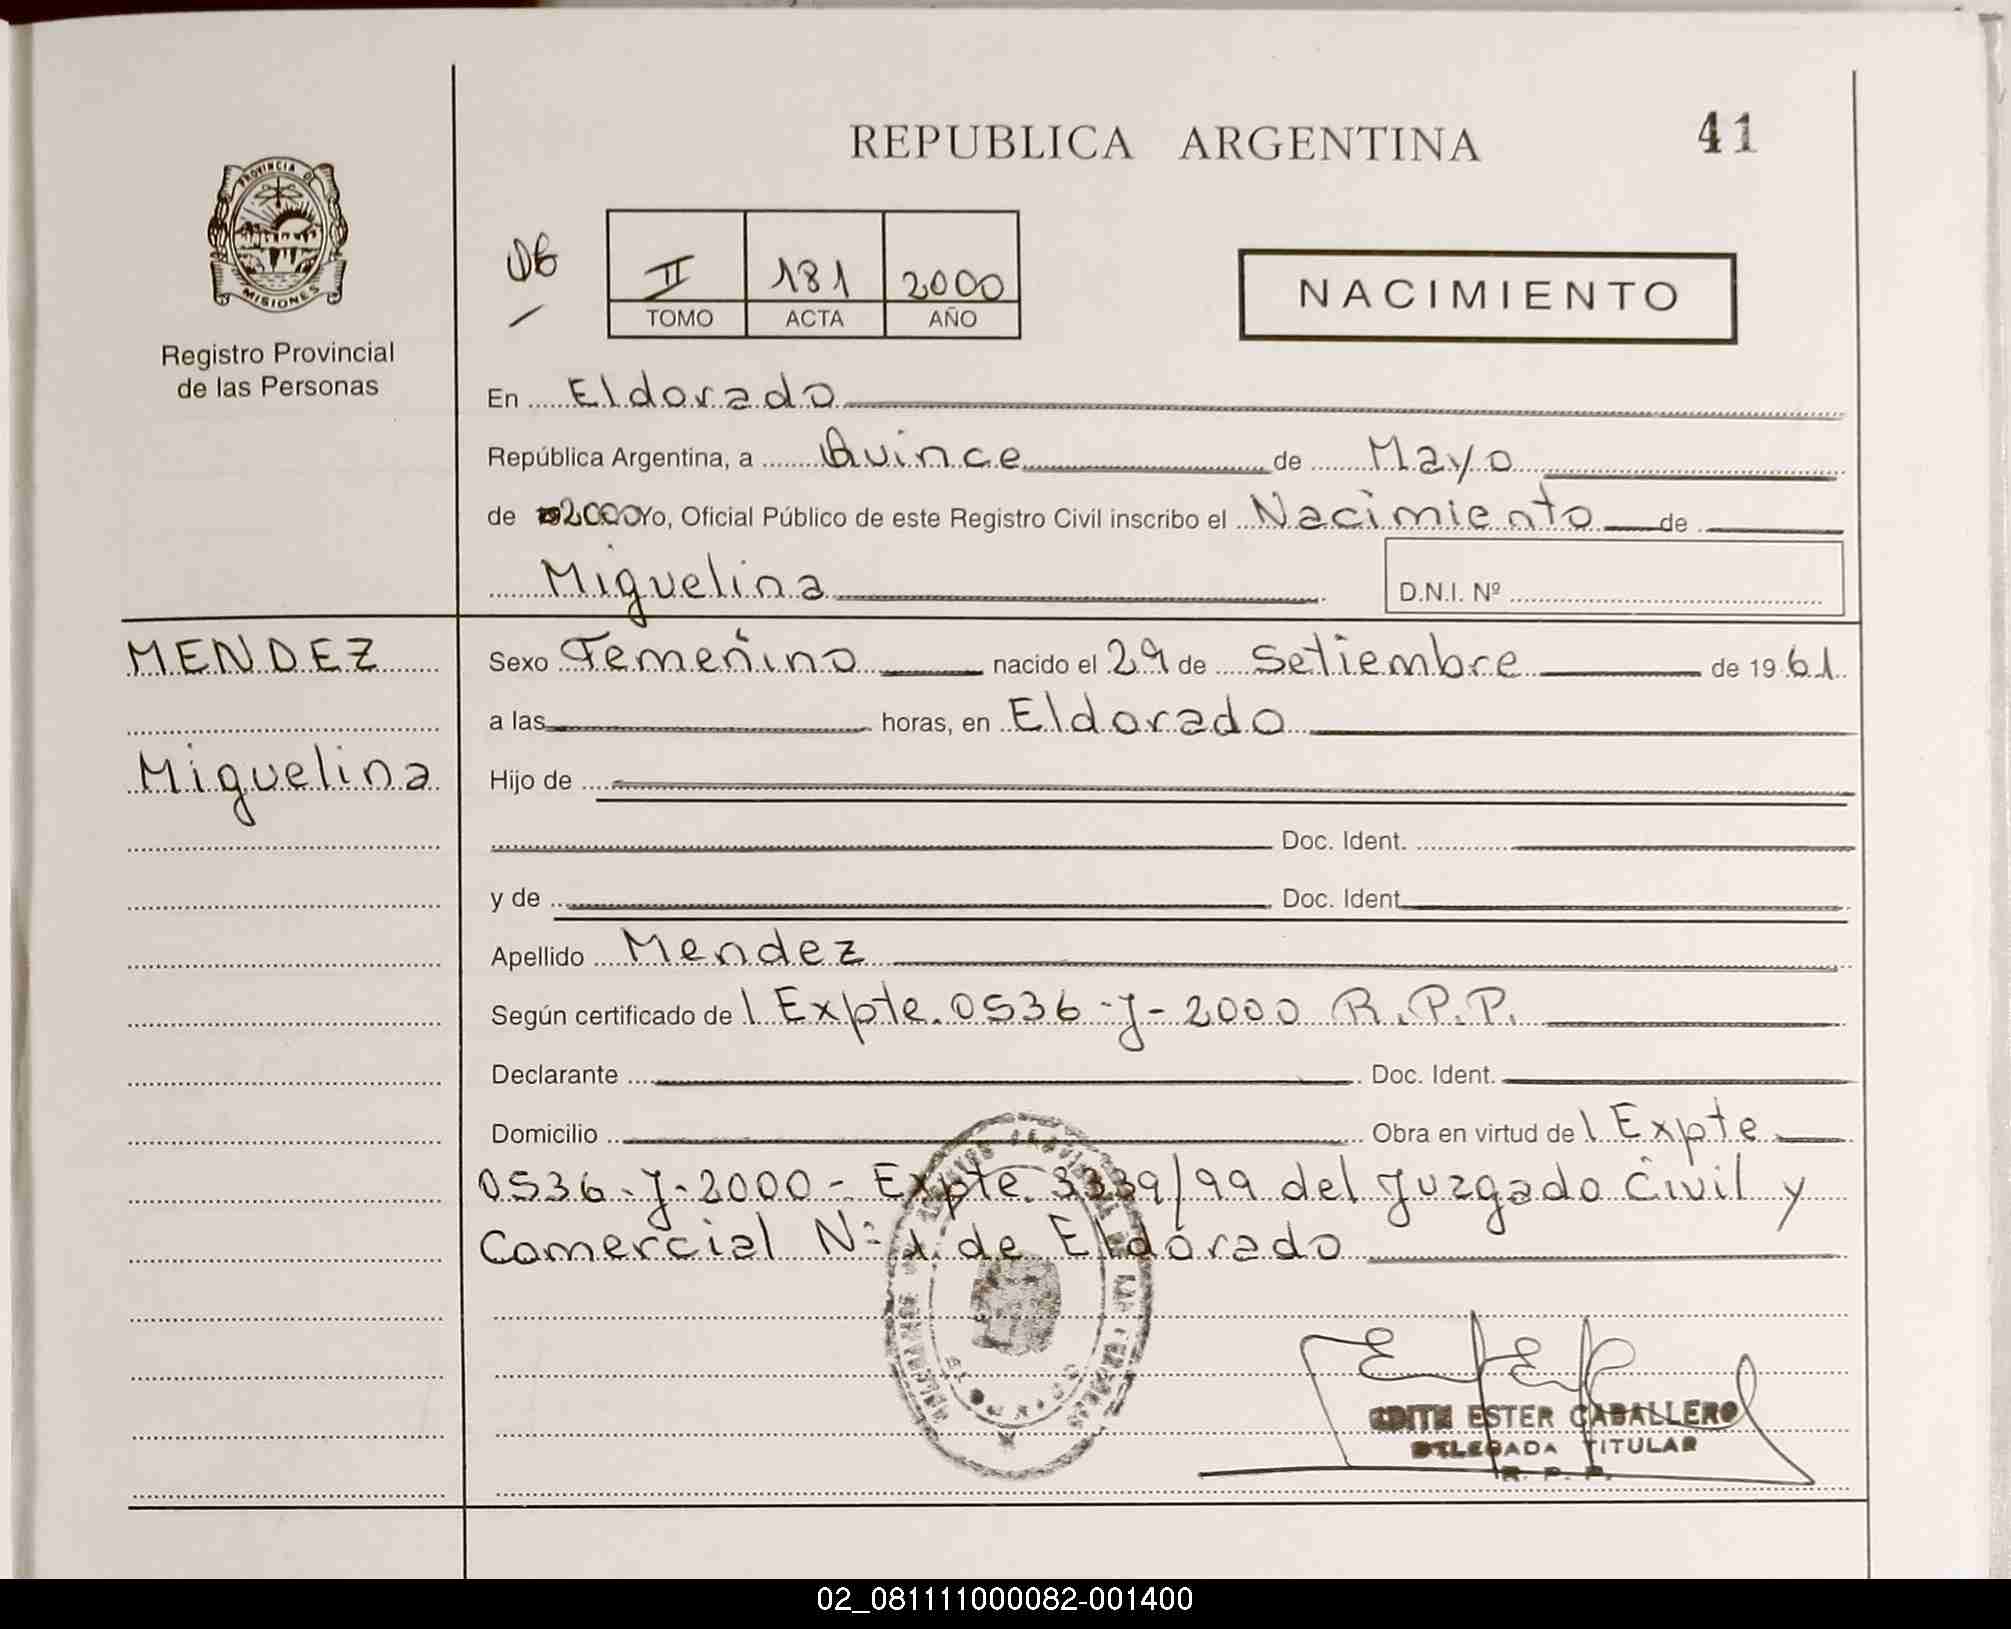 REPUBLICA ARGENTINA
41
PROVINCIA DE
MISIONES
Registro Provincial
de las Personas
06
II 181 2000
TOMO ACTA AÑO
NACIMIENTO
En Eldorado
República Argentina, a Quince de Mayo
de 2000 Yo, Oficial Público de este Registro Civil inscribo el Nacimiento de
Miguelina
D.N.I. Nº
MENDEZ
Miguelina
Sexo Femenino nacido el 29 de Setiembre de 1961
a las horas, en Eldorado
Hijo de
Doc. Ident.
y de Doc. Ident.
Apellido Mendez
Según certificado de l Expte. 0536-J-2000 R.P.P.
Declarante Doc. Ident.
Domicilio Obra en virtud de l Expte
0536-J-2000 - Expte. 3339/99 del Juzgado Civil y
Comercial Nº 1 de Eldorado
EDITH ESTER CABALLERO
DELEGADA TITULAR
R. P. P.
02_081111000082-001400